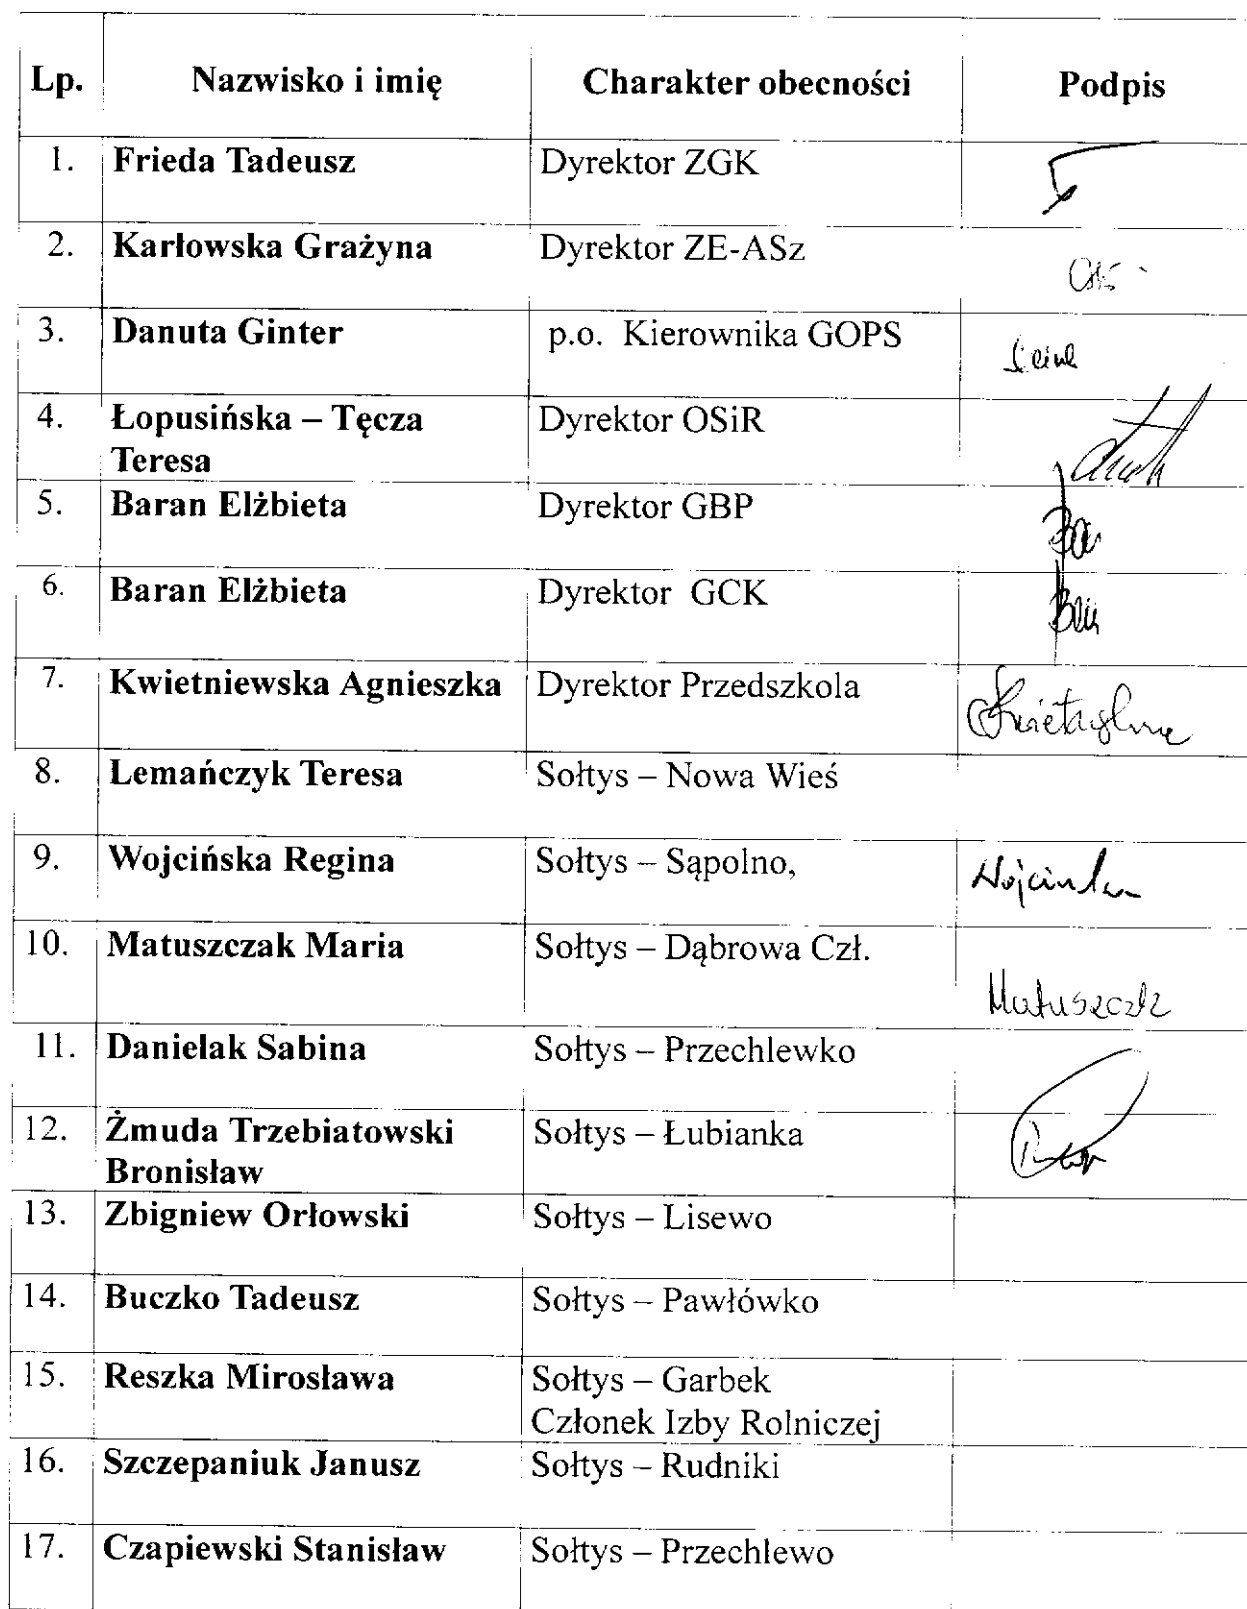 Lp. Nazwisko i imię Charakter obecności Podpis
1. Frieda Tadeusz Dyrektor ZGK
2. Karłowska Grażyna Dyrektor ZE-ASz
3. Danuta Ginter p.o. Kierownika GOPS
4. Łopusińska – Tęcza Dyrektor OSiR
Teresa
5. Baran Elżbieta Dyrektor GBP
6. Baran Elżbieta Dyrektor GCK
7. Kwietniewska Agnieszka Dyrektor Przedszkola
8. Lemańczyk Teresa Sołtys – Nowa Wieś
9. Wojcińska Regina Sołtys – Sąpolno,
10. Matuszczak Maria Sołtys – Dąbrowa Czł.
11. Danielak Sabina Sołtys – Przechlewko
12. Żmuda Trzebiatowski Sołtys – Łubianka
Bronisław
13. Zbigniew Orłowski Sołtys – Lisewo
14. Buczko Tadeusz Sołtys – Pawłówko
15. Reszka Mirosława Sołtys – Garbek
Członek Izby Rolniczej
16. Szczepaniuk Janusz Sołtys – Rudniki
17. Czapiewski Stanisław Sołtys – Przechlewo